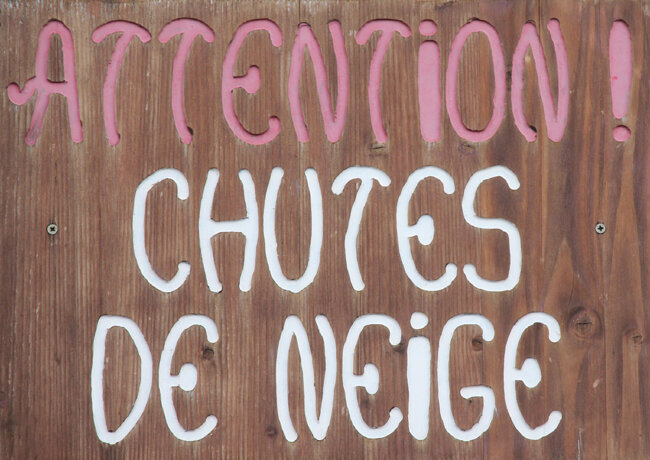 ATTENTION !
CHUTES
DE NEIGE